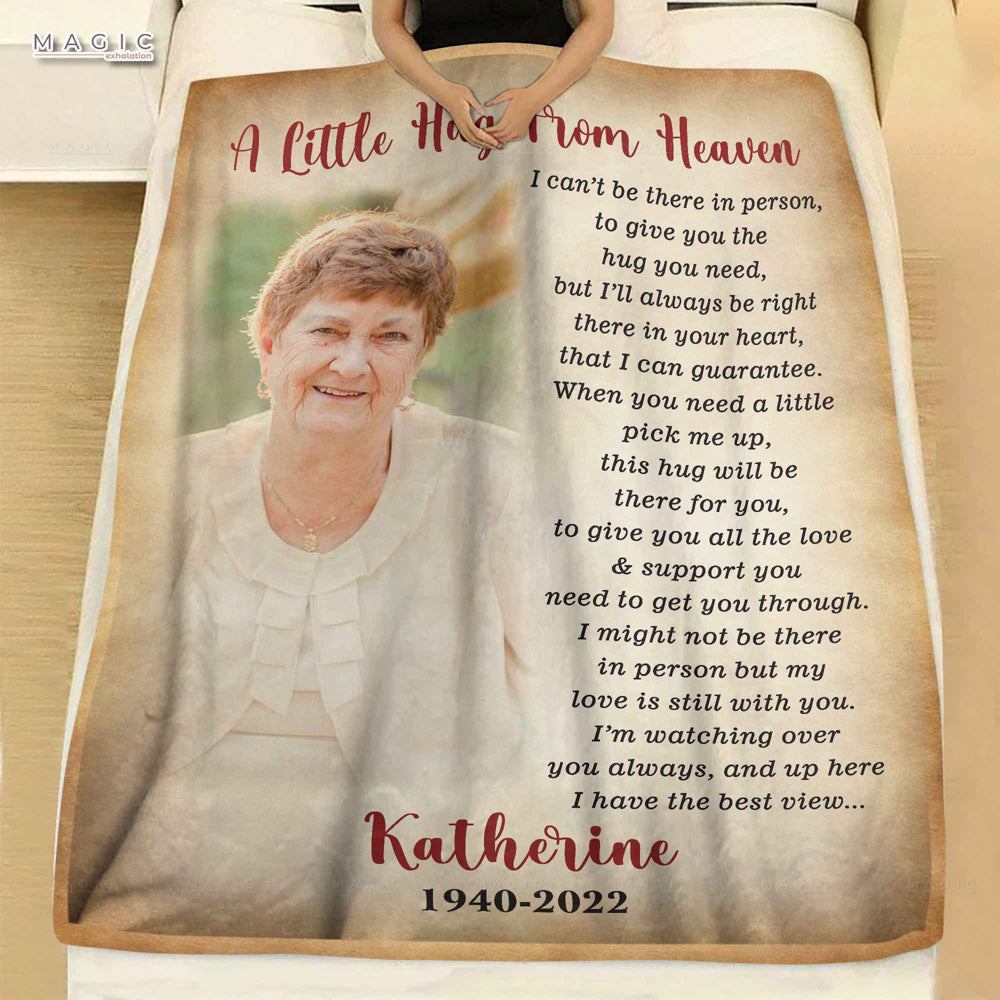 MAGIC
exhalation
A Little Hug From Heaven
I can't be there in person,
to give you the
hug you need,
but I'll always be right
there in your heart,
that I can guarantee.
When you need a little
pick me up,
this hug will be
there for you,
to give you all the love
& support you
need to get you through.
I might not be there
in person but my
love is still with you.
I'm watching over
you always, and up here
I have the best view...
Katherine
1940-2022